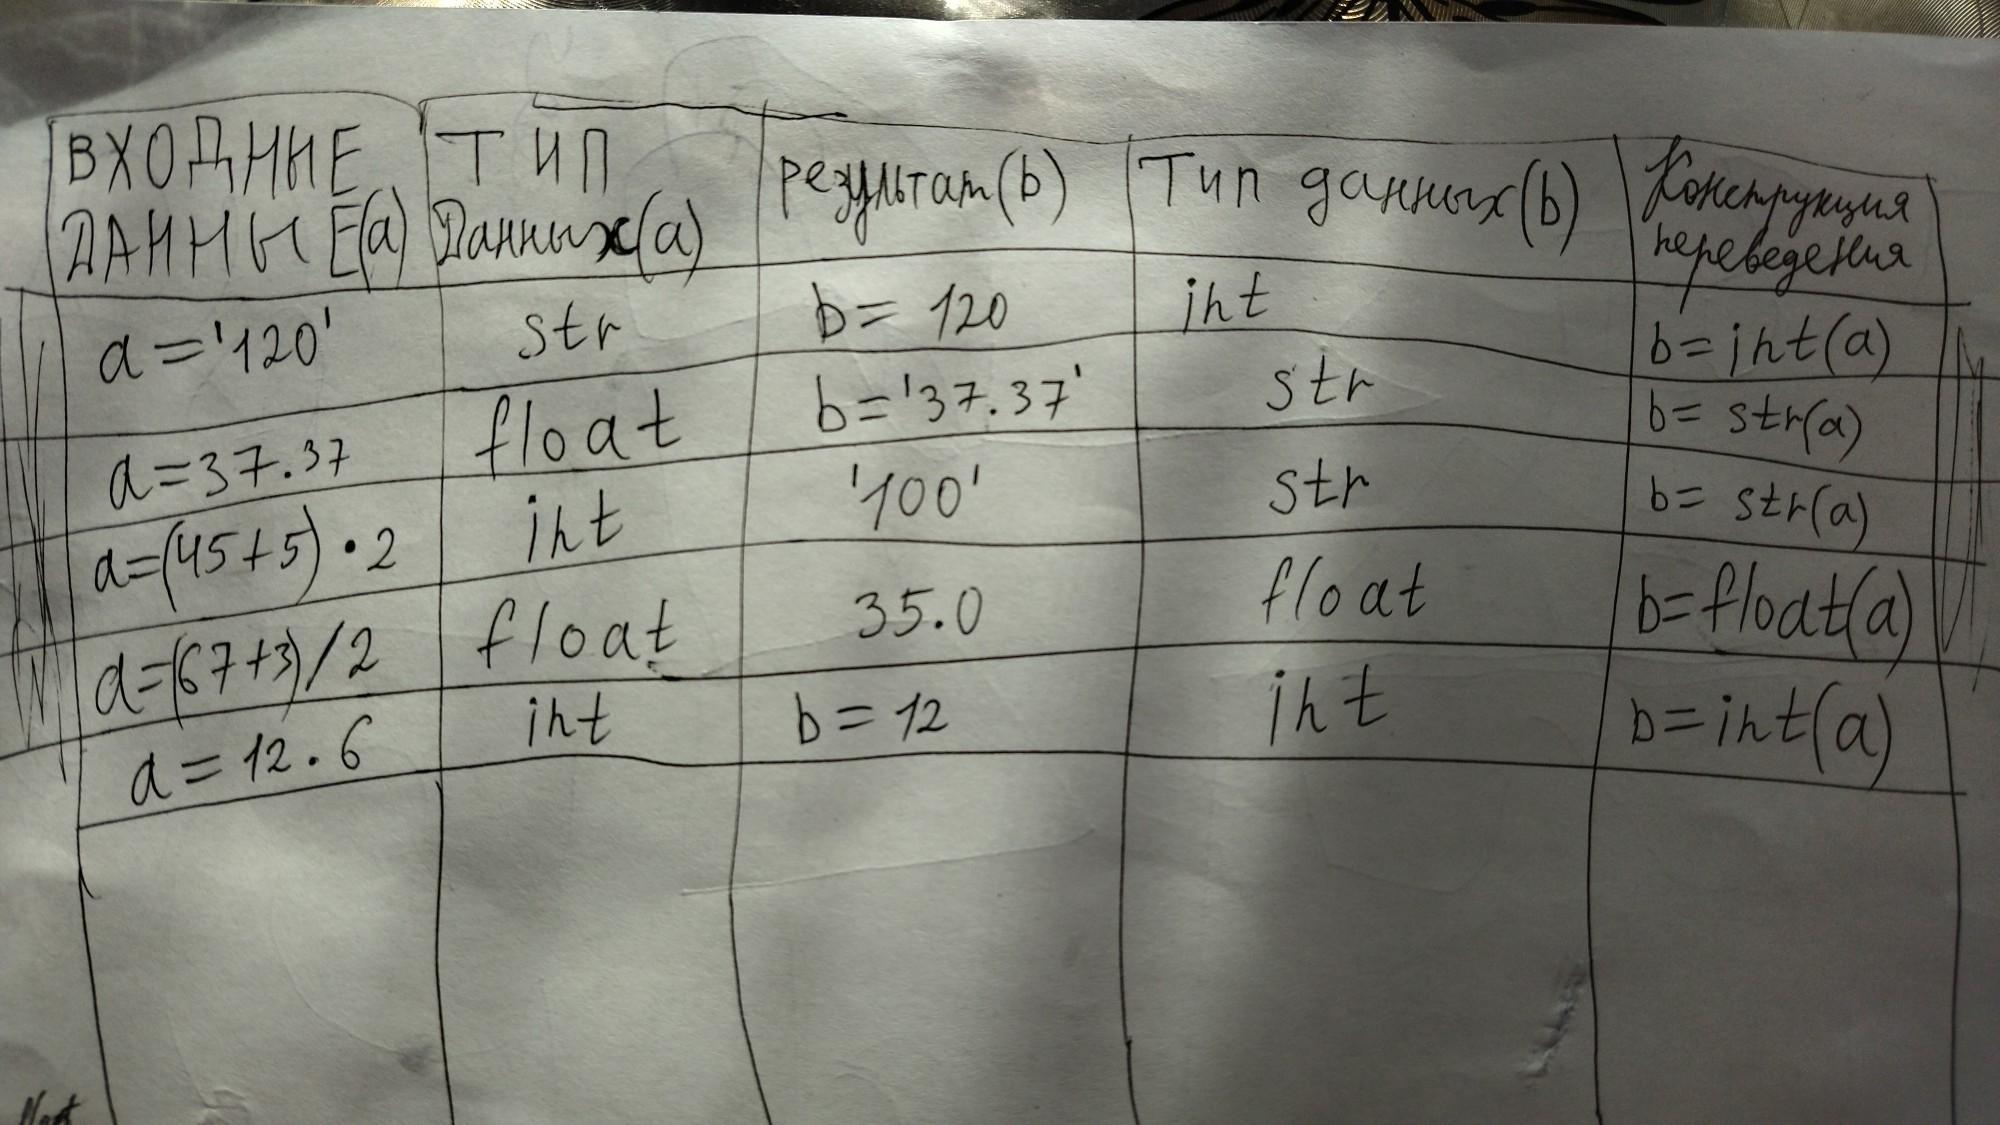 ВХОДНЫЕ ДАННЫЕ(a) ТИП Данных(a) результат(b) Тип данных(b) Конструкция переведения
a='120' str b= 120 int b=int(a)
a=37.37 float b='37.37' str b= str(a)
a=(45+5)•2 int '100' str b= str(a)
a=(67+3)/2 float 35.0 float b=float(a)
a=12.6 int b=12 int b=int(a)